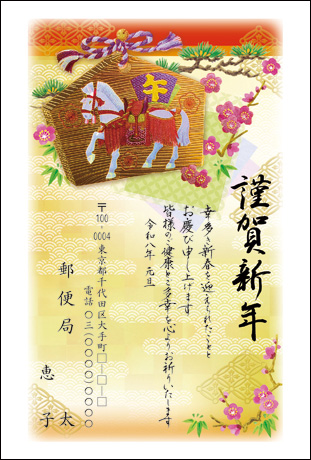 午
謹賀新年
幸多き新春を迎えられたことと
お慶び申し上げます
皆様のご健康とご多幸を心よりお祈りいたします
令和八年 元旦
〒100-0004
東京都千代田区大手町□-□-□
電話 〇三(〇〇〇〇)〇〇〇〇
郵便局 太
恵子